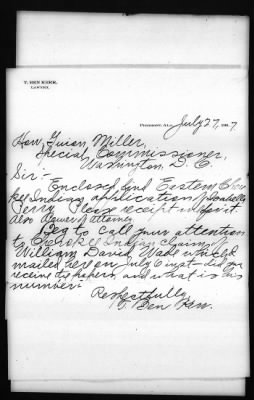 T. BEN KERR,
LAWYER.
PIEDMONT, ALA., July 27, 1907.
Hon. Guion Miller,
Special Commissioner,
Washington, D. C.
Sir:-
Enclosed find Eastern Chero-
kee Indian application of
Perry. Please receipt for it.
also Power of attorney.
Beg to call your attention
to Cherokee Indian claim of
William David Wade which I
mailed her on July 6 inst - did you
receive the papers, and what is his
number?
Respectfully,
T. Ben Kerr.